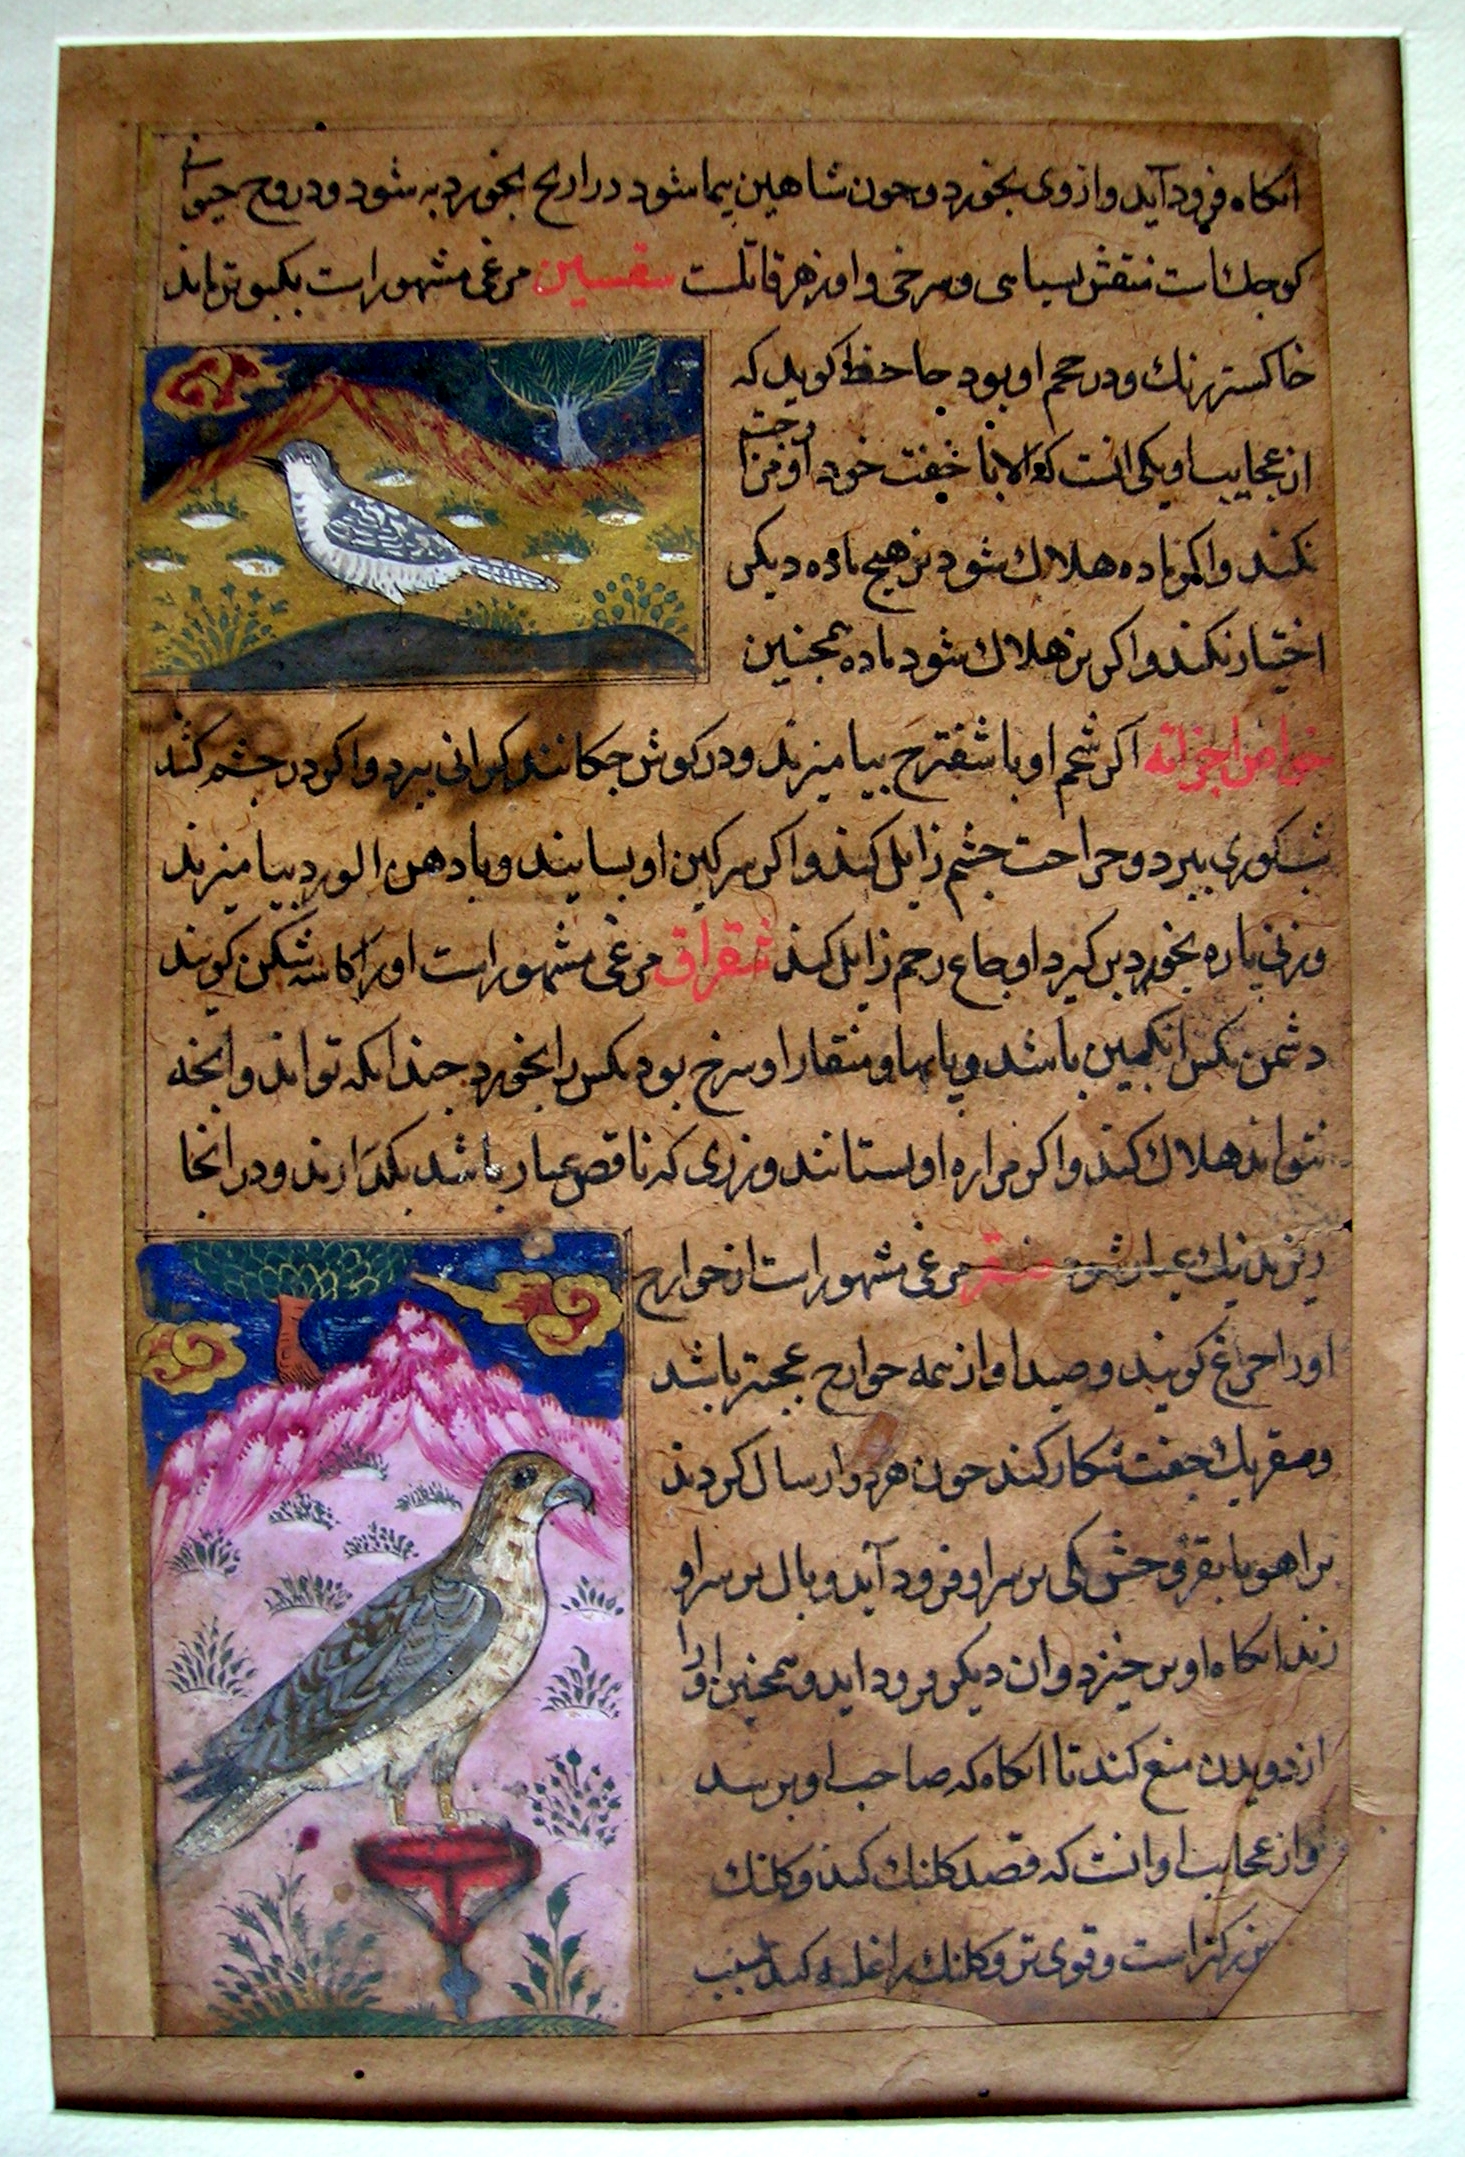 انکاه فرود آید و از وی بخورد و چون شاهین بیما شود دراریح بخورد به شود و دروح حیوانی
کوجك است منقش بسیاهی و سرخی و او زهر قاتلست سفسین مرغی مشهور است بکبوتر ماند
خاکستر رنك و در حجم او بود جاحظ کوید که
از عجایب او یکی انست که الا با جفت خود و جفت او مزا
نکند و اکر ماده هلاك شود نر هیچ ماده دیکر
اختیار نکند و اکر نر هلاك شود ماده همجنین
خواص اجزائه اکر شحم او با شفترح بیامیزند و در کوش جکانند کرانی ببرد و اکر در جشم کشند
شب کوری ببرد و جراحت جشم زایل کند و اکر سرکین او بسایند و با دهن الورد بیامیزند
و زنی باره بخورد بر کیرد اوجاع رحم زایل کند شقراق مرغی مشهور است او را کاسه شکن کویند
دشمن مکس انکبین باشد و پایها و منقار او سرخ بود مکس را بخورد جندانکه تواند و انجه
نتواند هلاك کند و اکر مراره او بستانند و زری که ناقص عیار باشد بکدازند و در انجا
ریزند نیك عیار شود صقر مرغی مشهور است از جوارح
او را جرغ کویند و صید او از همه جوارح عجبتر باشد
و صقر یك جفت شکار کنند جون هر دو ارسال کردند
بر اهو یا بقر وحش یکی بر سر او فرود آید و بال بر سر او
زند انکاه او بر خیزد و ان دیکر فرود اید و همجنین او را
از دویدن منع کند تا انکاه که صاحب او برسد
و از عجایب او انست که قصد کلنك کند و کلنك
بزرکتر است و قوی تر و کلنك را غلبه کند بسبب